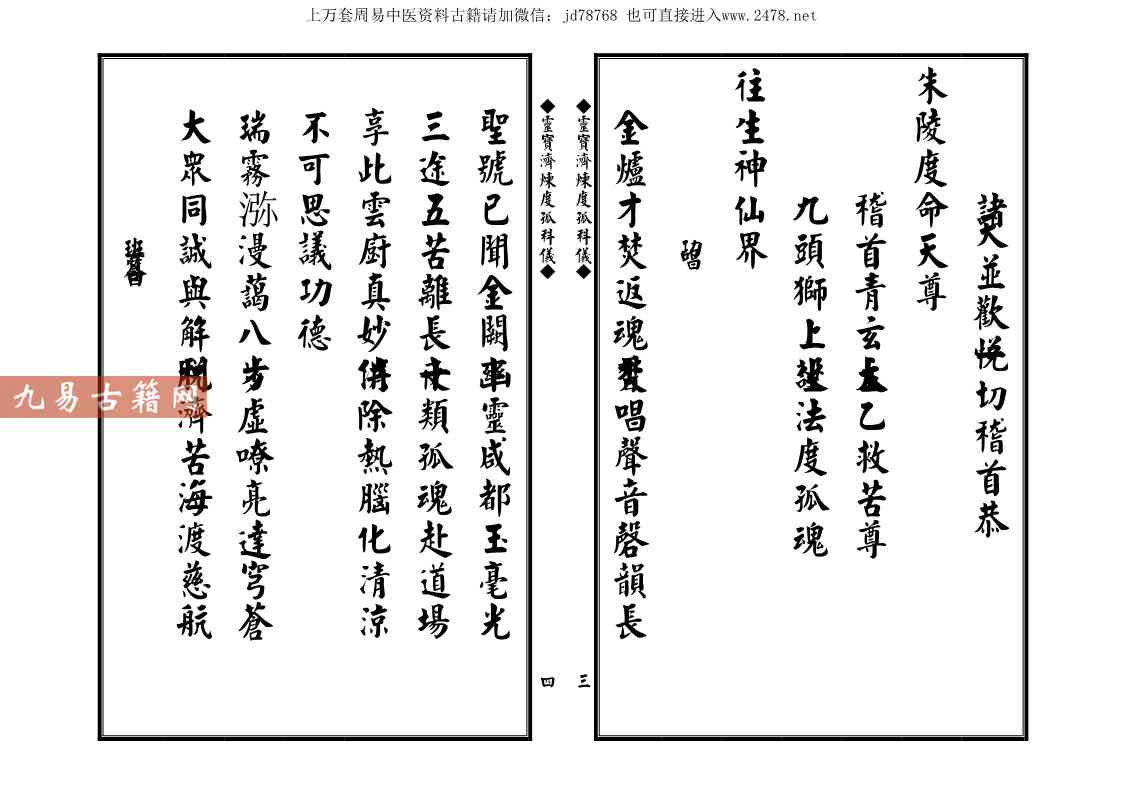 上万套周易中医资料古籍请加微信：jd78768 也可直接进入www.2478.net
諸 並歡悅切稽首恭
朱陵度命天尊
稽首青玄 乙救苦尊
九頭獅上 法度孤魂
往生神仙界
金爐才焚返魂 唱聲音磬韻長
◆靈寶濟煉度孤科儀◆
三
◆靈寶濟煉度孤科儀◆
四
聖號已聞金闕 靈咸都玉毫光
三途五苦離長 類孤魂赴道場
享此雲廚真妙 除熱腦化清涼
不可思議功德
瑞霧濔漫藹八步虛嘹亮達穹蒼
大眾同誠與解 濟苦海渡慈航
九易古籍网